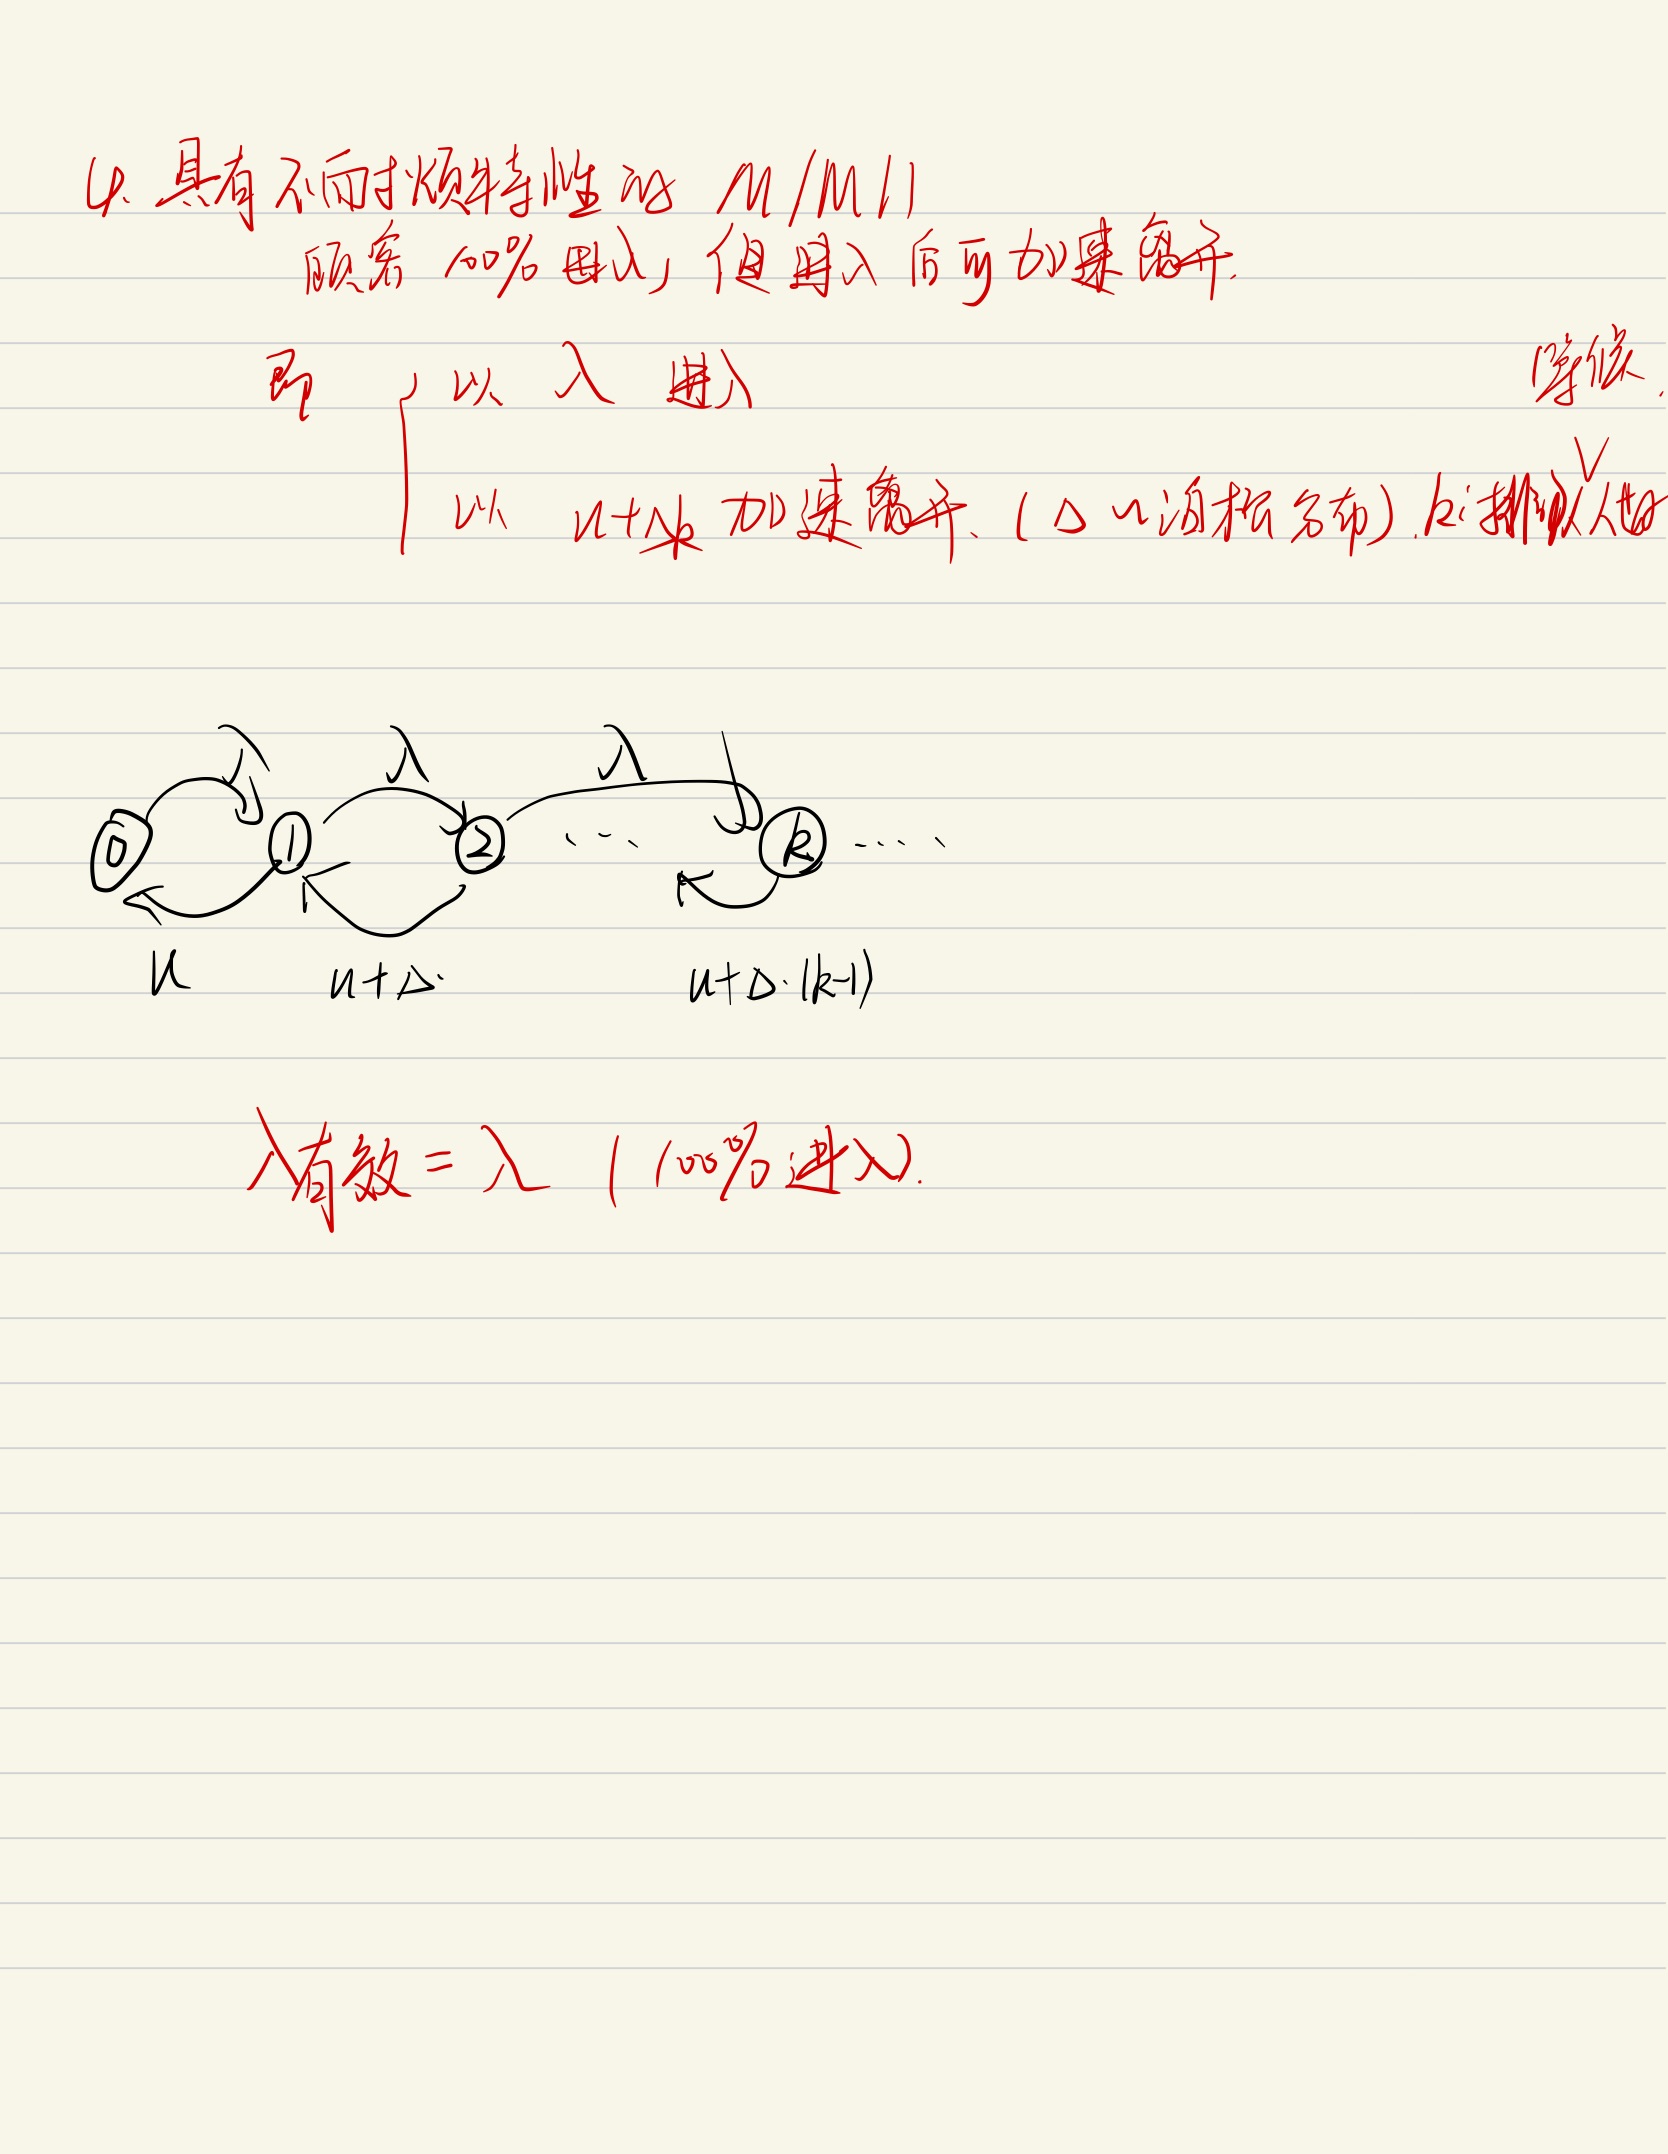 4. 具有不耐烦特性的 M/M/1
顾客 100% 进入, 但进入后可加速离开.
即 { 以 λ 进入
等候.
以 u+Δk 加速离开. (Δ ~ 泊松分布). k: 排队人数
λ λ λ
0 1 2 ... k ....
u u+Δ. u+Δ·(k-1)
λ有效 = λ (100% 进入).